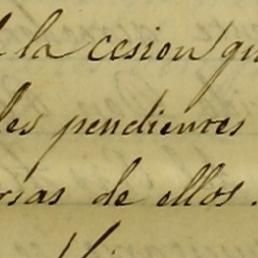 la cesion qu
les pendientes
rsas de ellos.